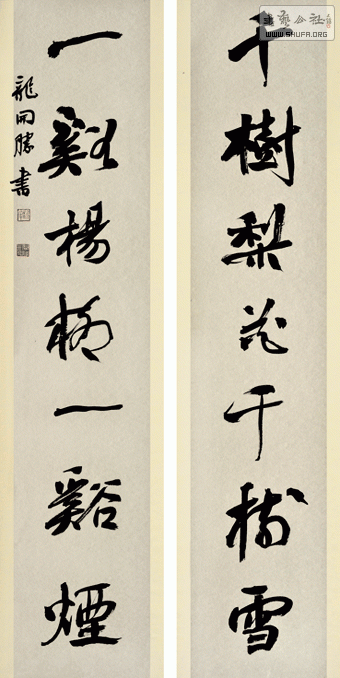 千樹梨花千樹雪
一谿楊柳一谿煙
龍開勝書
書法公社
WWW.SHUFA.ORG